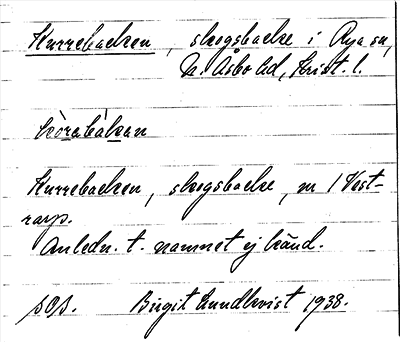 Kurrebacken, skogsbacke i Rya sn,
N. Åsbo hd, Krist. l.
kòrabàkan
Kurrebacken, skogsbacke, m / Vest-
rarp.
Anledn. t. namnet ej känd.
sos. Birgit Lundkvist 1938.